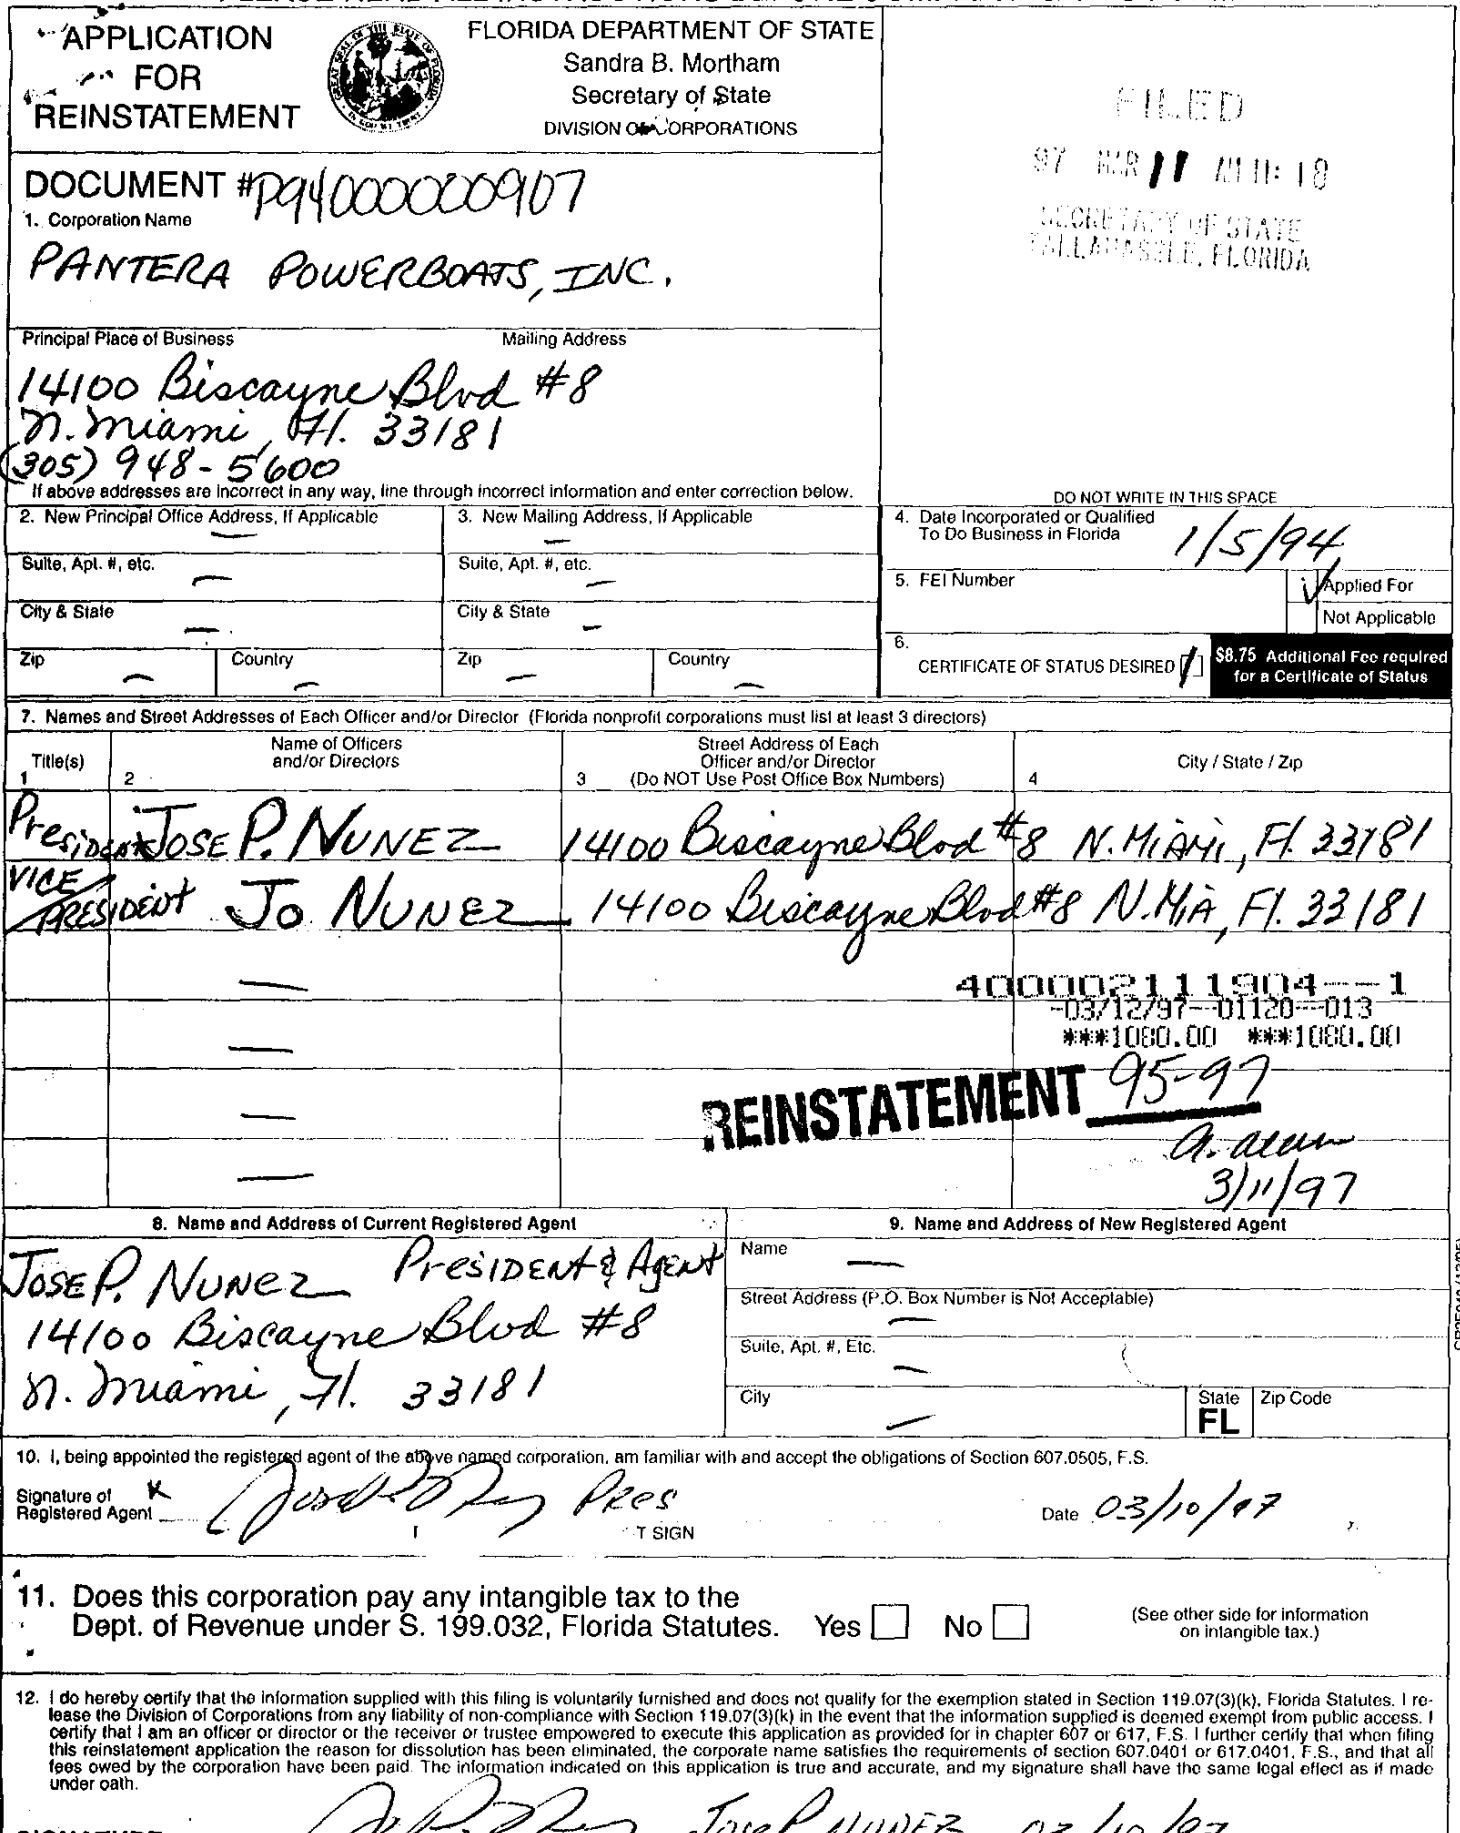 APPLICATION
FOR
REINSTATEMENT
FLORIDA DEPARTMENT OF STATE
Sandra B. Mortham
Secretary of State
DIVISION OF CORPORATIONS
FILED
97 MAR 11 AM 11:18
SECRETARY OF STATE
TALLAHASSEE, FLORIDA
DOCUMENT #P94000000907
1. Corporation Name
PANTERA POWERBOATS, INC.
Principal Place of Business Mailing Address
14100 Biscayne Blvd #8
N. Miami, Fl. 33181
(305) 948-5600
If above addresses are incorrect in any way, line through incorrect information and enter correction below.
DO NOT WRITE IN THIS SPACE
2. New Principal Office Address, If Applicable
3. New Mailing Address, If Applicable
4. Date Incorporated or Qualified
To Do Business in Florida
1/5/94
Suite, Apt. #, etc.
Suite, Apt. #, etc.
5. FEI Number
Applied For
Not Applicable
City & State
City & State
6.
CERTIFICATE OF STATUS DESIRED
$8.75 Additional Fee required
for a Certificate of Status
Zip Country Zip Country
7. Names and Street Addresses of Each Officer and/or Director (Florida nonprofit corporations must list at least 3 directors)
Title(s)
1
Name of Officers
and/or Directors
2
Street Address of Each
Officer and/or Director
3 (Do NOT Use Post Office Box Numbers)
4
City / State / Zip
President JOSE P. NUNEZ 14100 Biscayne Blvd #8 N. MIAMI, Fl. 33181
VICE
PRESIDENT JO NUNEZ 14100 Biscayne Blvd #8 N. MIA, Fl. 33181
400002111904--1
-03/12/97--01120--013
***1080.00 ***1080.00
REINSTATEMENT 95-97
3/11/97
8. Name and Address of Current Registered Agent
JOSE P. NUNEZ PRESIDENT & AGENT
14100 Biscayne Blvd #8
N. Miami, Fl. 33181
9. Name and Address of New Registered Agent
Name
Street Address (P.O. Box Number is Not Acceptable)
Suite, Apt. #, Etc.
City
State
FL
Zip Code
10. I, being appointed the registered agent of the above named corporation, am familiar with and accept the obligations of Section 607.0505, F.S.
Signature of
Registered Agent
Pres
T SIGN
Date 03/10/97
11. Does this corporation pay any intangible tax to the
Dept. of Revenue under S. 199.032, Florida Statutes. Yes No
(See other side for information
on intangible tax.)
12. I do hereby certify that the information supplied with this filing is voluntarily furnished and does not qualify for the exemption stated in Section 119.07(3)(k), Florida Statutes. I re-
lease the Division of Corporations from any liability of non-compliance with Section 119.07(3)(k) in the event that the information supplied is deemed exempt from public access. I
certify that I am an officer or director or the receiver or trustee empowered to execute this application as provided for in chapter 607 or 617, F.S. I further certify that when filing
this reinstatement application the reason for dissolution has been eliminated, the corporate name satisfies the requirements of section 607.0401 or 617.0401, F.S., and that all
fees owed by the corporation have been paid. The information indicated on this application is true and accurate, and my signature shall have the same legal effect as if made
under oath.
JOSE P NUNEZ 03/10/97